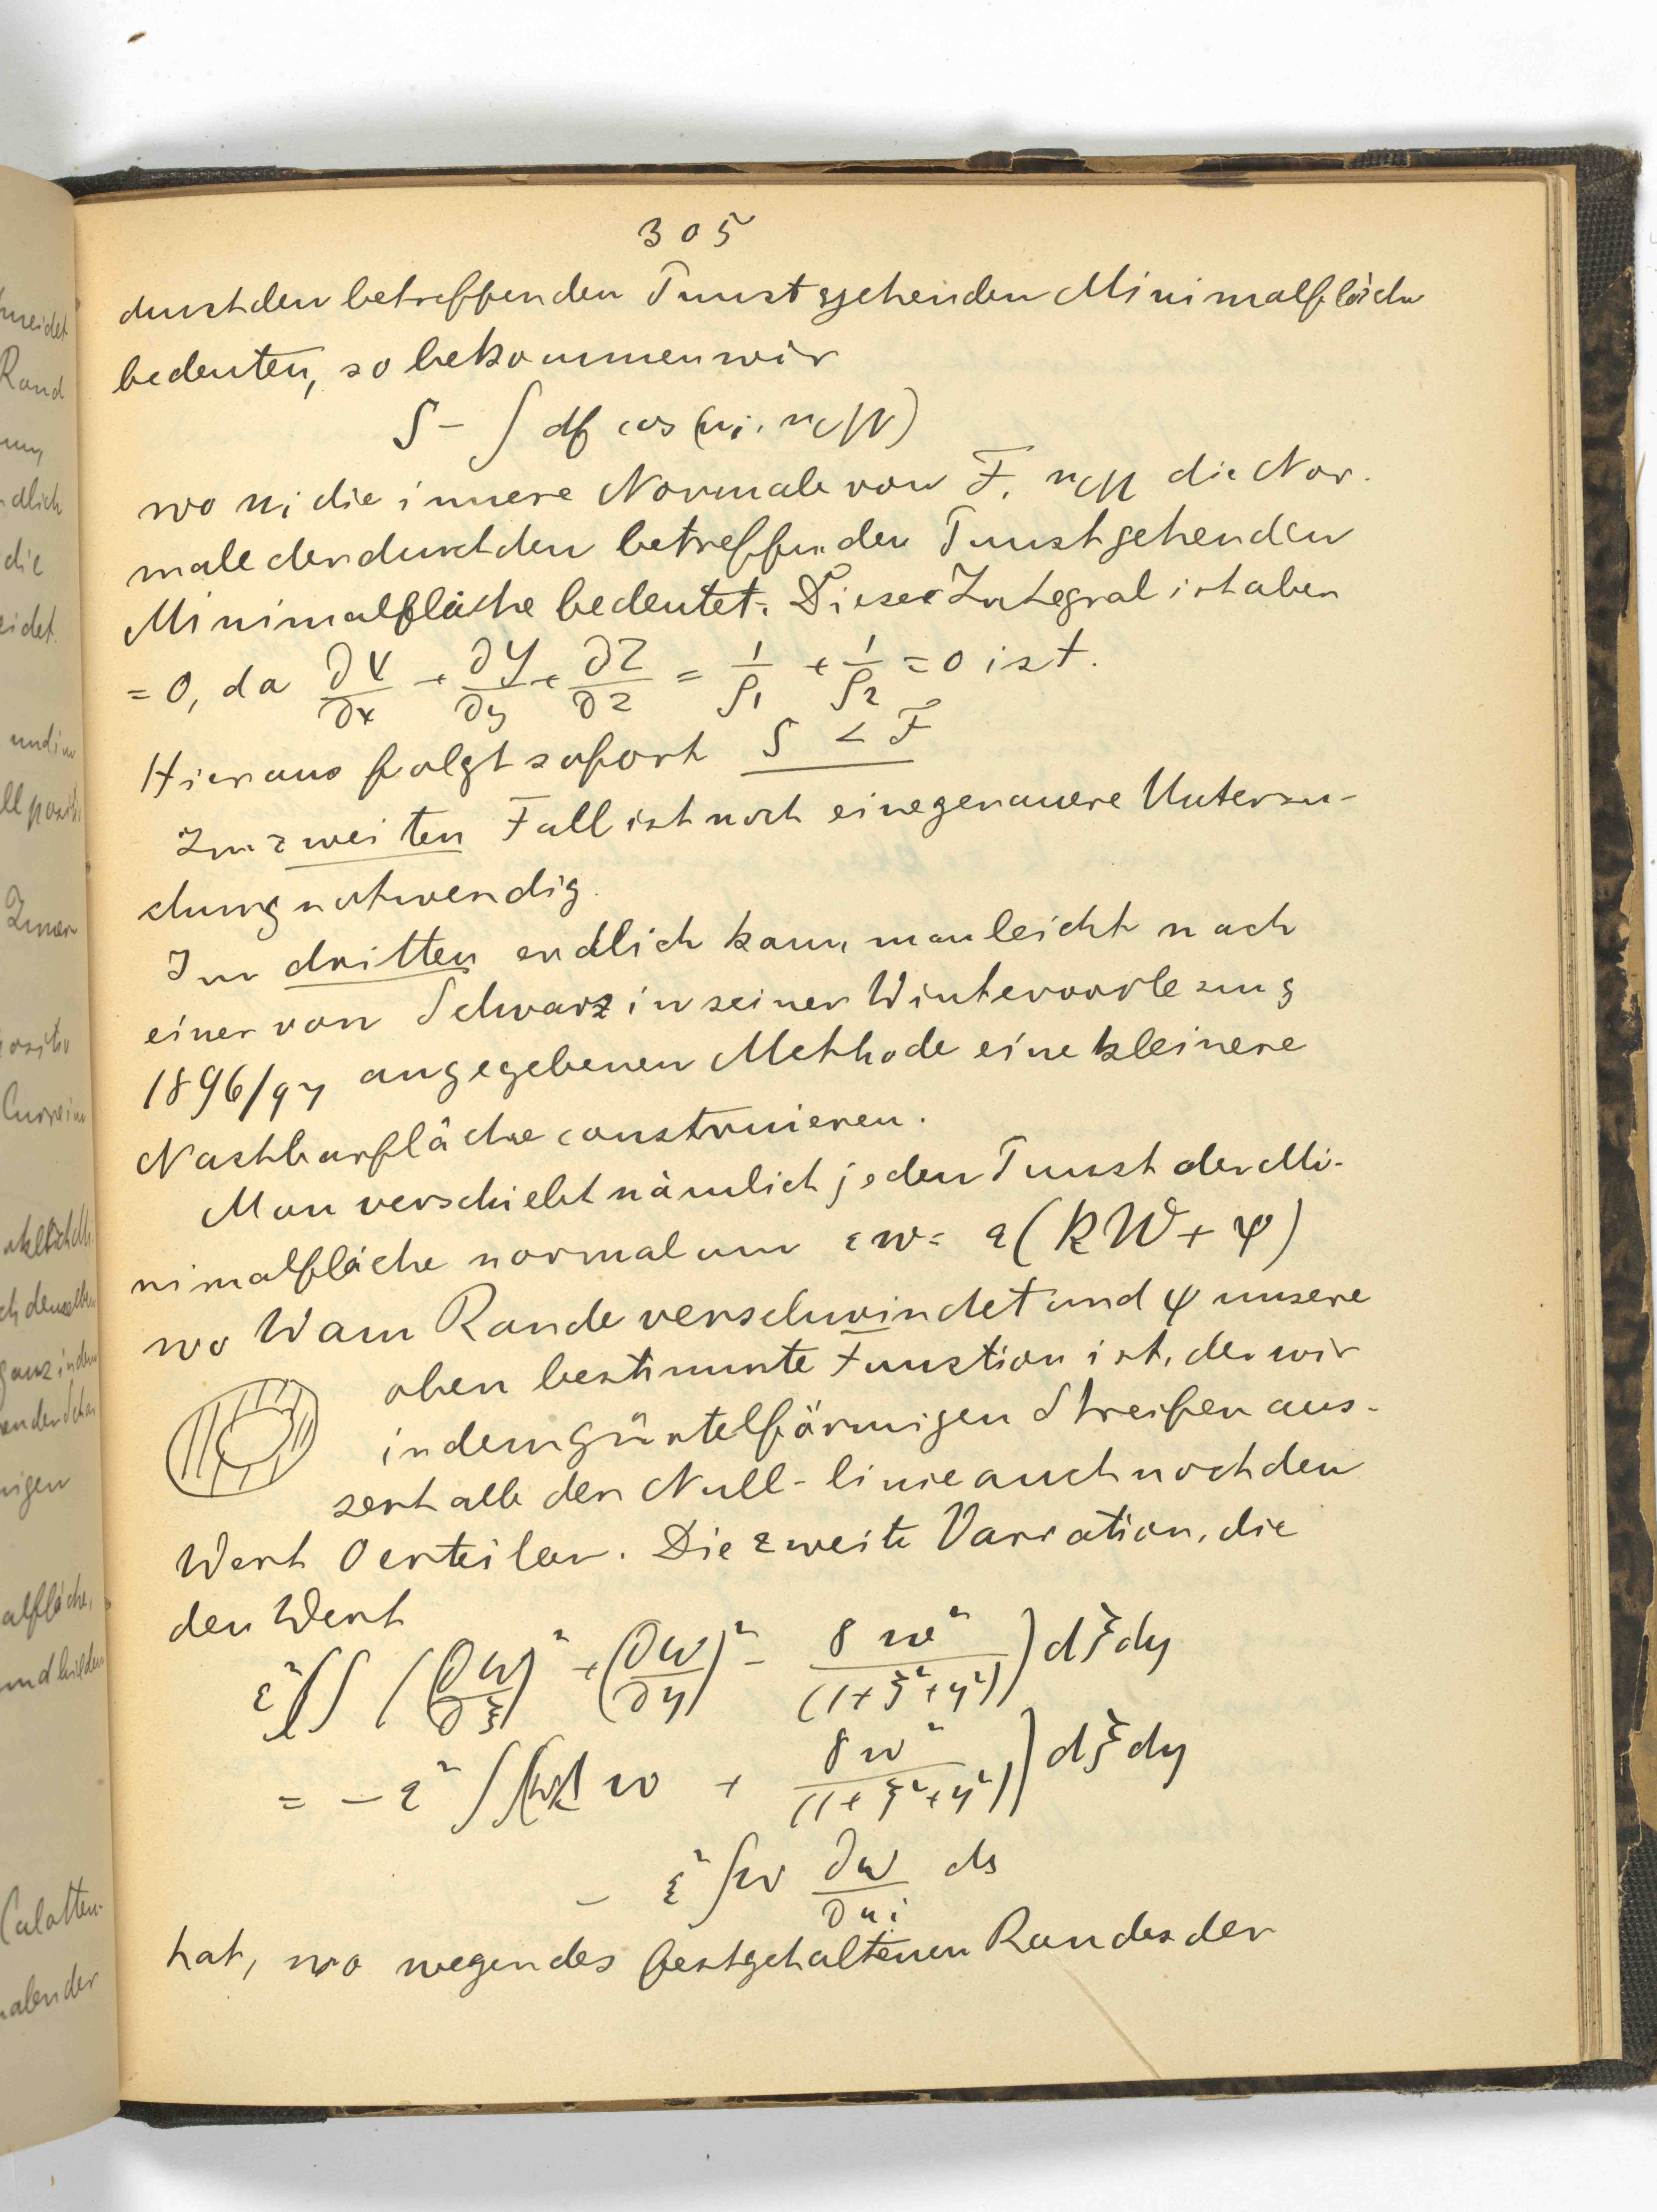 305
durch den betreffenden Punkt gehenden Minimalfläche
bedeuten, so bekommen wir
S - ∫ df cos (n_i, n_M)
wo n_i die innere Normale von F, n_M die Nor-
male der durch den betreffenden Punkt gehenden
Minimalfläche bedeutet. Dieses Integral ist aber
= 0, da ∂X/∂x + ∂Y/∂y + ∂Z/∂z = 1/ρ₁ + 1/ρ₂ = 0 ist.
Hieraus folgt sofort S < F
Im zweiten Fall ist noch eine genauere Untersu-
chung notwendig.
Im dritten endlich kann man leicht nach
einer von Schwarz in seiner Wintervorlesung
1896/97 angegebenen Methode eine kleinere
Nachbarfläche construieren.
Man verschiebt nämlich jeden Punkt der Mi-
nimalfläche normal um εw = ε(kW + φ)
wo W am Rande verschwindet und φ unsere
oben bestimmte Funktion ist, der wir
in dem gürtelförmigen Streifen aus-
serhalb der Null-linie auch noch den
Wert 0 erteilen. Die zweite Variation, die
den Wert
ε² ∫∫ ((∂w/∂ξ)² + (∂w/∂η)² - 8w²/(1+ξ²+η²)) dξdη
= - ε² ∫∫ ( w + 8w²/(1+ξ²+η²)) dξdη
- ε² ∫ w ∂w/∂n_i ds
hat, wo wegen des festgehaltenen Randes der